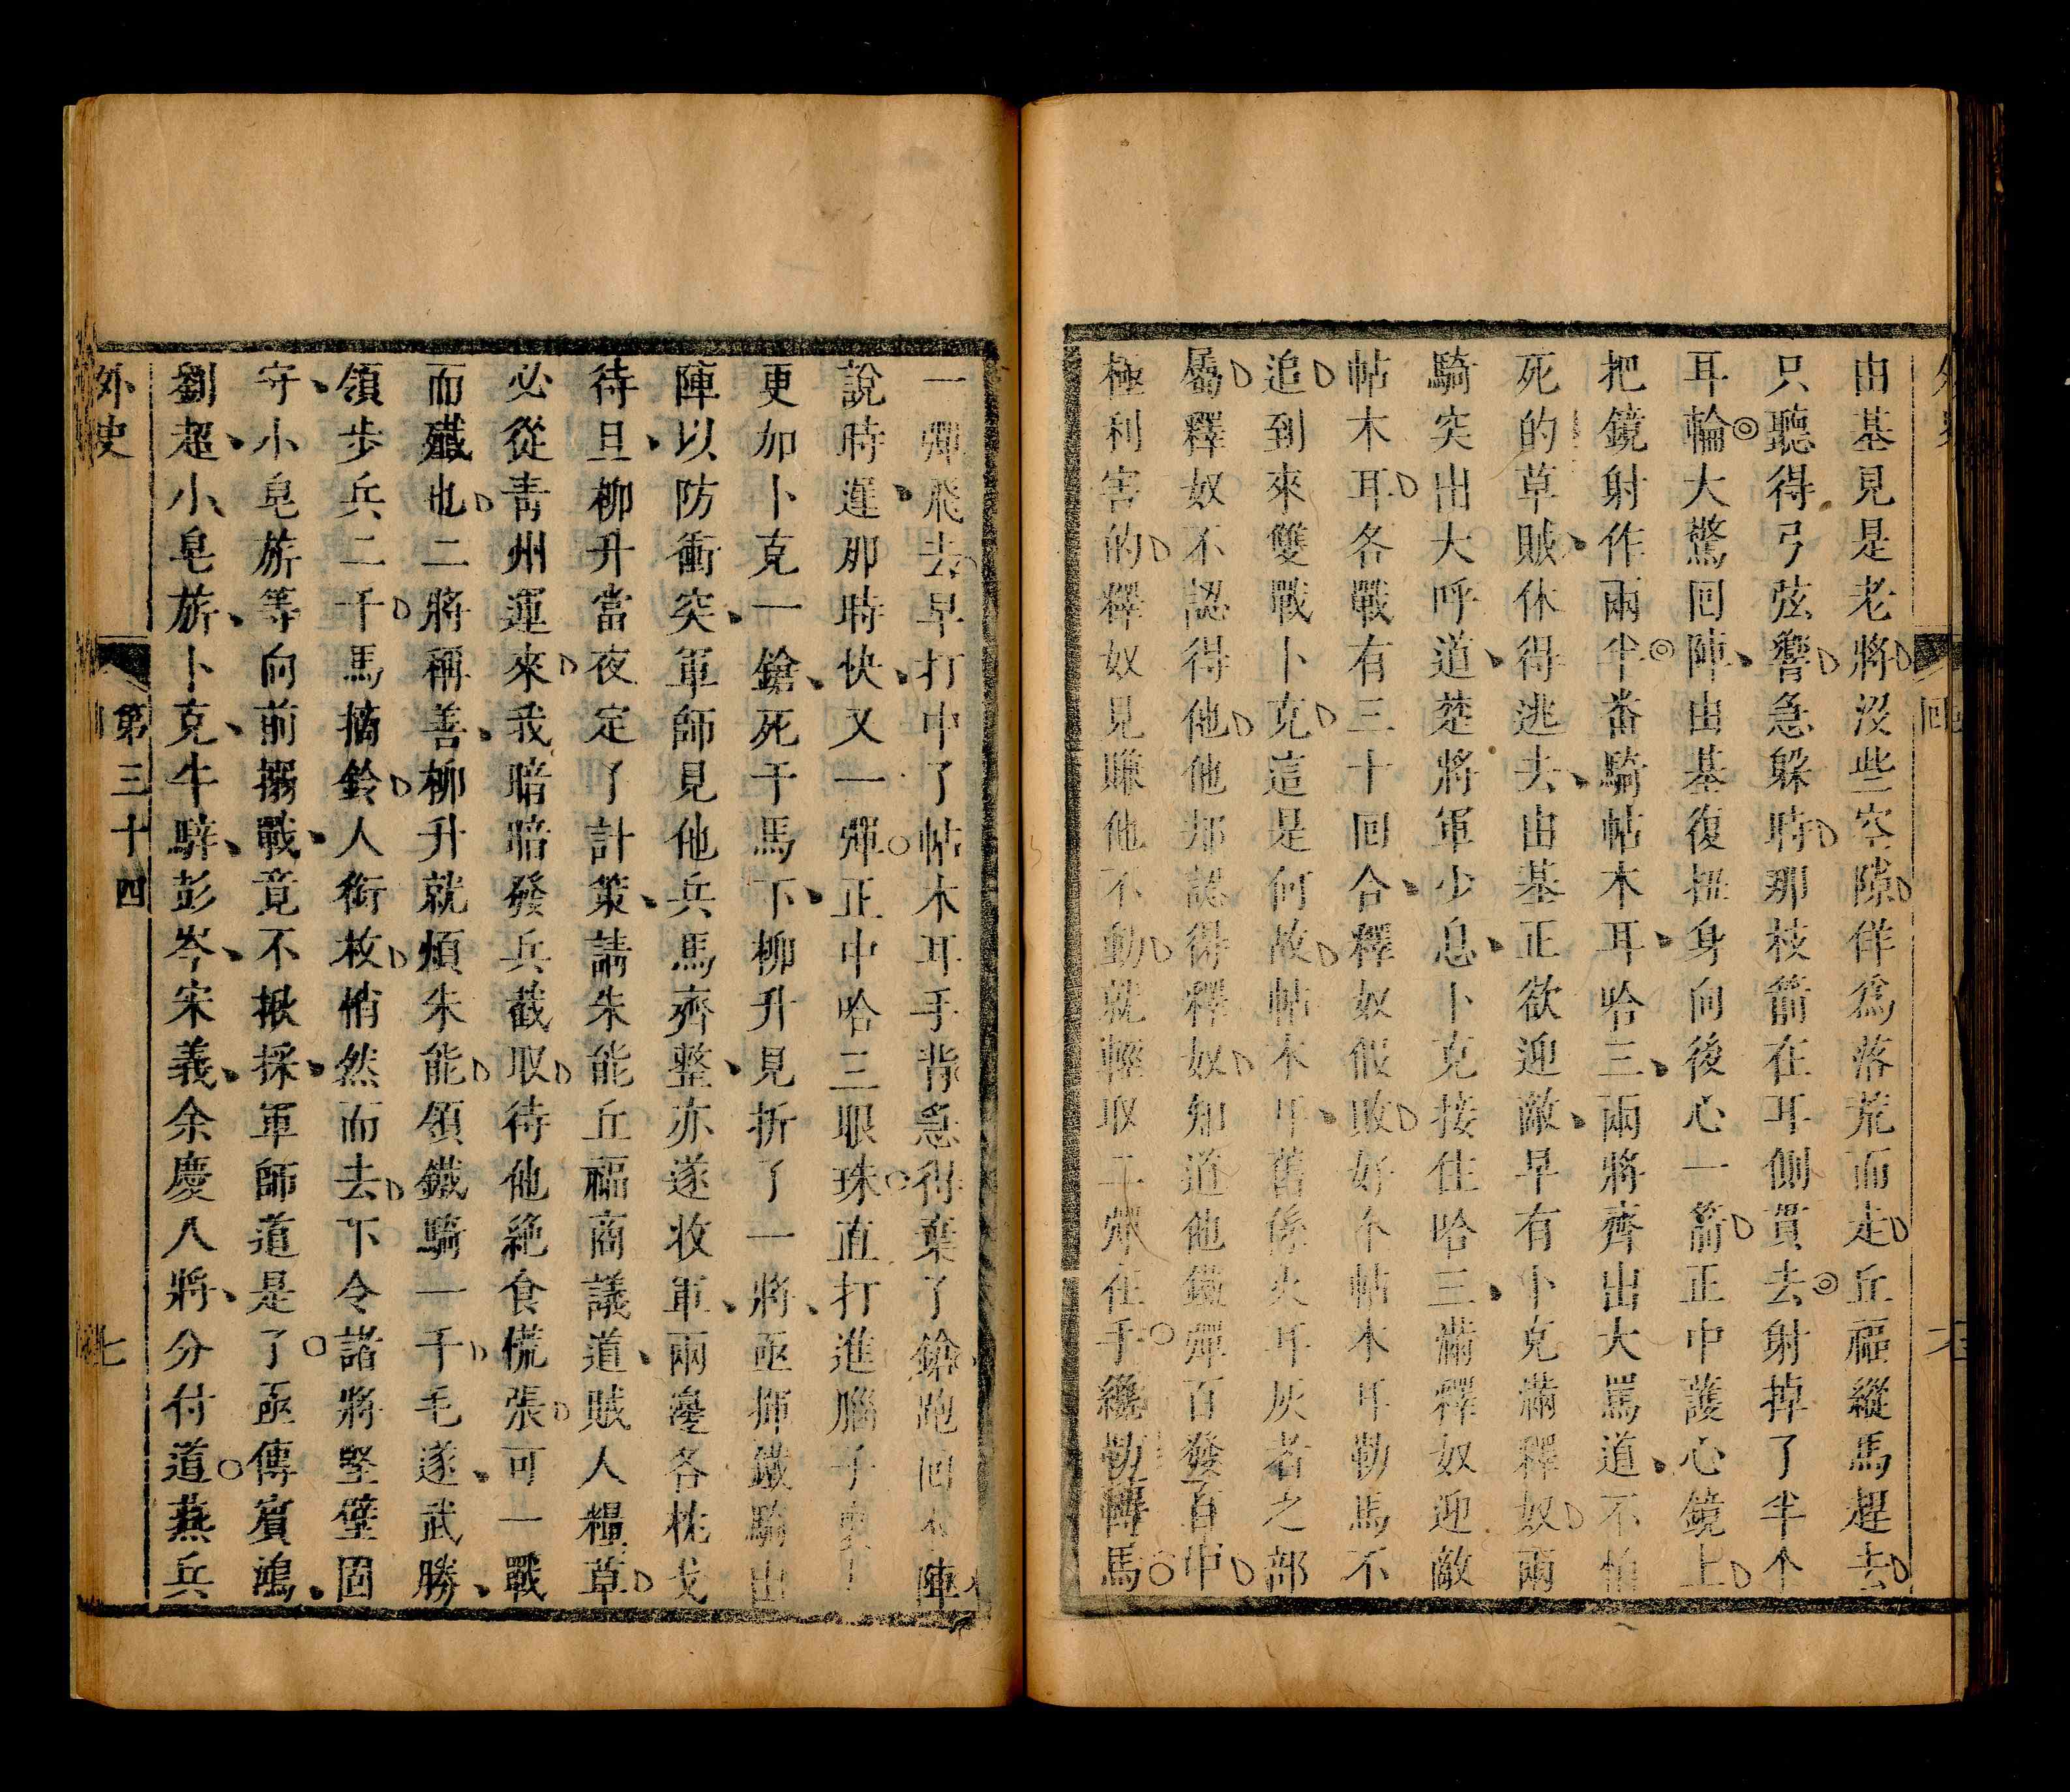 由基見是老將没些空隙佯爲落荒而走丘福縱馬趕去
只聽得弓弦響急躱時那枝箭在耳側貫去射掉了半个
耳輪大驚回陣由基復扭身向後心一箭正中護心鏡上
把鏡射作兩半番騎帖木耳哈三兩將齊出大罵道不怕
死的草賊休得逃去由基正欲迎敵早有卜克滿釋奴兩
騎突出大呼道楚將軍少息卜克接住哈三滿釋奴迎敵
帖木耳各戰有三十回合釋奴假敗好个帖木耳勒馬不
追到來雙戰卜克這是何故帖木耳舊係火耳灰者之部
屬釋奴不認得他他却認得釋奴知道他鐵彈百發百中
極利害的釋奴見賺他不動就輕取二彈在手纔勒轉馬
一彈飛去早打中了帖木耳手背急得棄了鎗跑回本陣
說時遲那時快又一彈正中哈三眼珠直打進腦子裏
更加卜克一鎗死于馬下柳升見折了一將亟揮鐵騎出
陣以防衝突軍師見他兵馬齊整亦遂收軍兩邊各枕戈
待旦柳升當夜定了計策請朱能丘福商議道賊人糧草
必從靑州運來我暗暗發兵截取待他絶食慌張可一戰
而殱也二將稱善柳升就煩朱能領鐵騎一千毛遂武勝
領步兵二千馬摘鈴人銜枚悄然而去下令諸將堅壁固
守小皂旂等向前搦戰竟不揪採軍師道是了亟傳賓鴻
劉超小皂旂卜克牛騂彭岑宋義余慶八將分付道燕兵
外史
第三十四
七